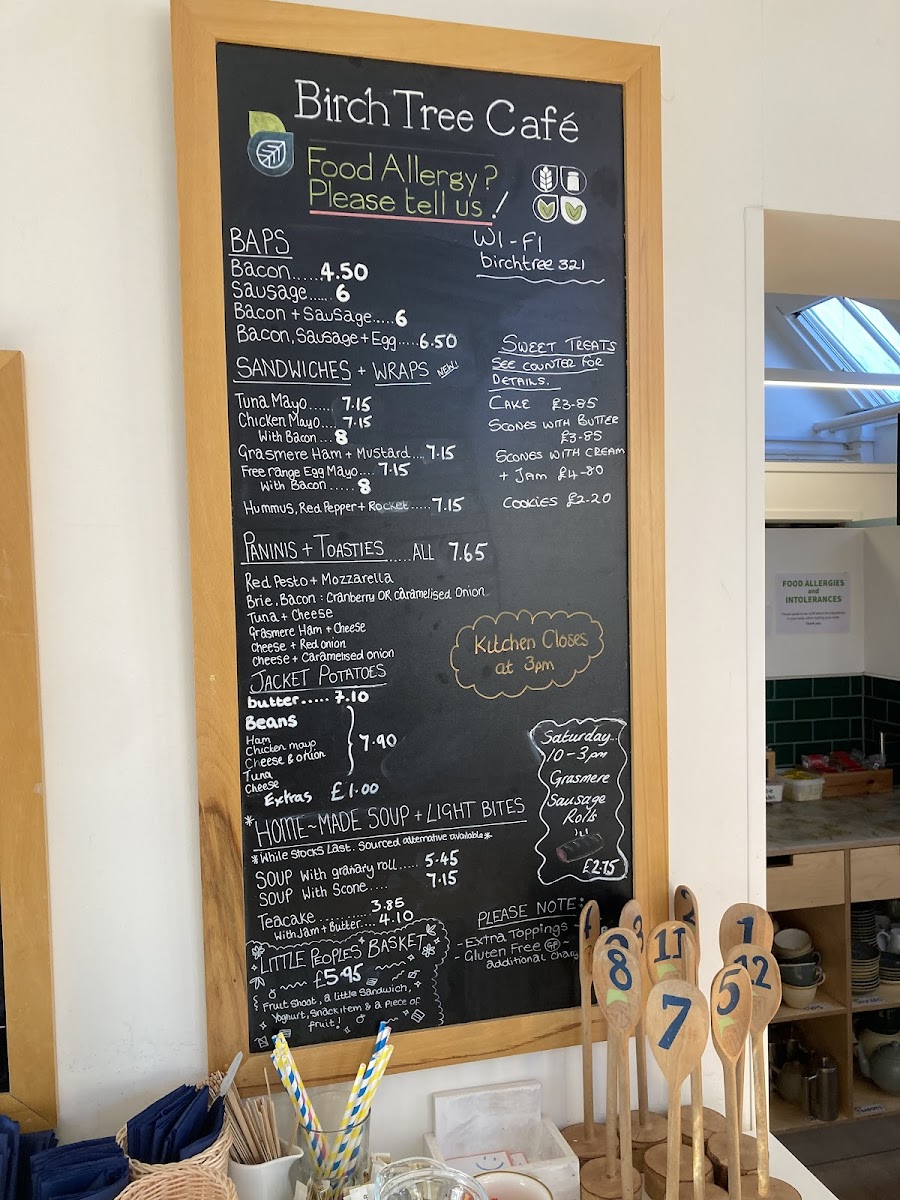 Birch Tree Café
Food Allergy?
Please tell us!
WI-FI
birchtree 321
BAPS
Bacon.....4.50
Sausage..... 6
Bacon + Sausage.....6
Bacon, Sausage + Egg.....6.50
SANDWICHES + WRAPS NEW!
Tuna Mayo...... 7.15
Chicken Mayo.... 7.15
With Bacon... 8
Grasmere Ham + Mustard....7.15
Free range Egg Mayo....7.15
With Bacon ..... 8
Hummus, Red Pepper + Rocket.....7.15
SWEET TREATS
SEE COUNTER FOR
DETAILS.
CAKE £3.85
SCONES WITH BUTTER
£3.85
SCONES WITH CREAM
+ JAM £4.80
COOKIES £2.20
PANINIS + TOASTIES.....ALL 7.65
Red Pesto + Mozzarella
Brie, Bacon : Cranberry OR caramelised Onion
Tuna + Cheese
Grasmere Ham + Cheese
Cheese + Red onion
Cheese + Caramelised onion
Kitchen Closes
at 3pm
JACKET POTATOES
butter..... 7.10
Beans
Ham
Chicken mayo
Cheese & onion
Tuna
Cheese
7.90
Extras £1.00
Saturday
10-3pm
Grasmere
Sausage
Rolls
£2.75
*HOME~MADE SOUP + LIGHT BITES
*While Stocks Last. Sourced alternative available*
SOUP With granary roll..... 5.45
SOUP With Scone.... 7.15
Teacake .......... 3.85
With Jam + Butter.... 4.10
PLEASE NOTE:
- Extra Toppings -
- Gluten Free GF ~
additional
LITTLE PEOPLES BASKET
£5.95
Fruit Shoot, a little Sandwich,
Yoghurt, Snack item & a piece of
fruit!
FOOD ALLERGIES
and
INTOLERANCES
8
11
2
1
7
5
12